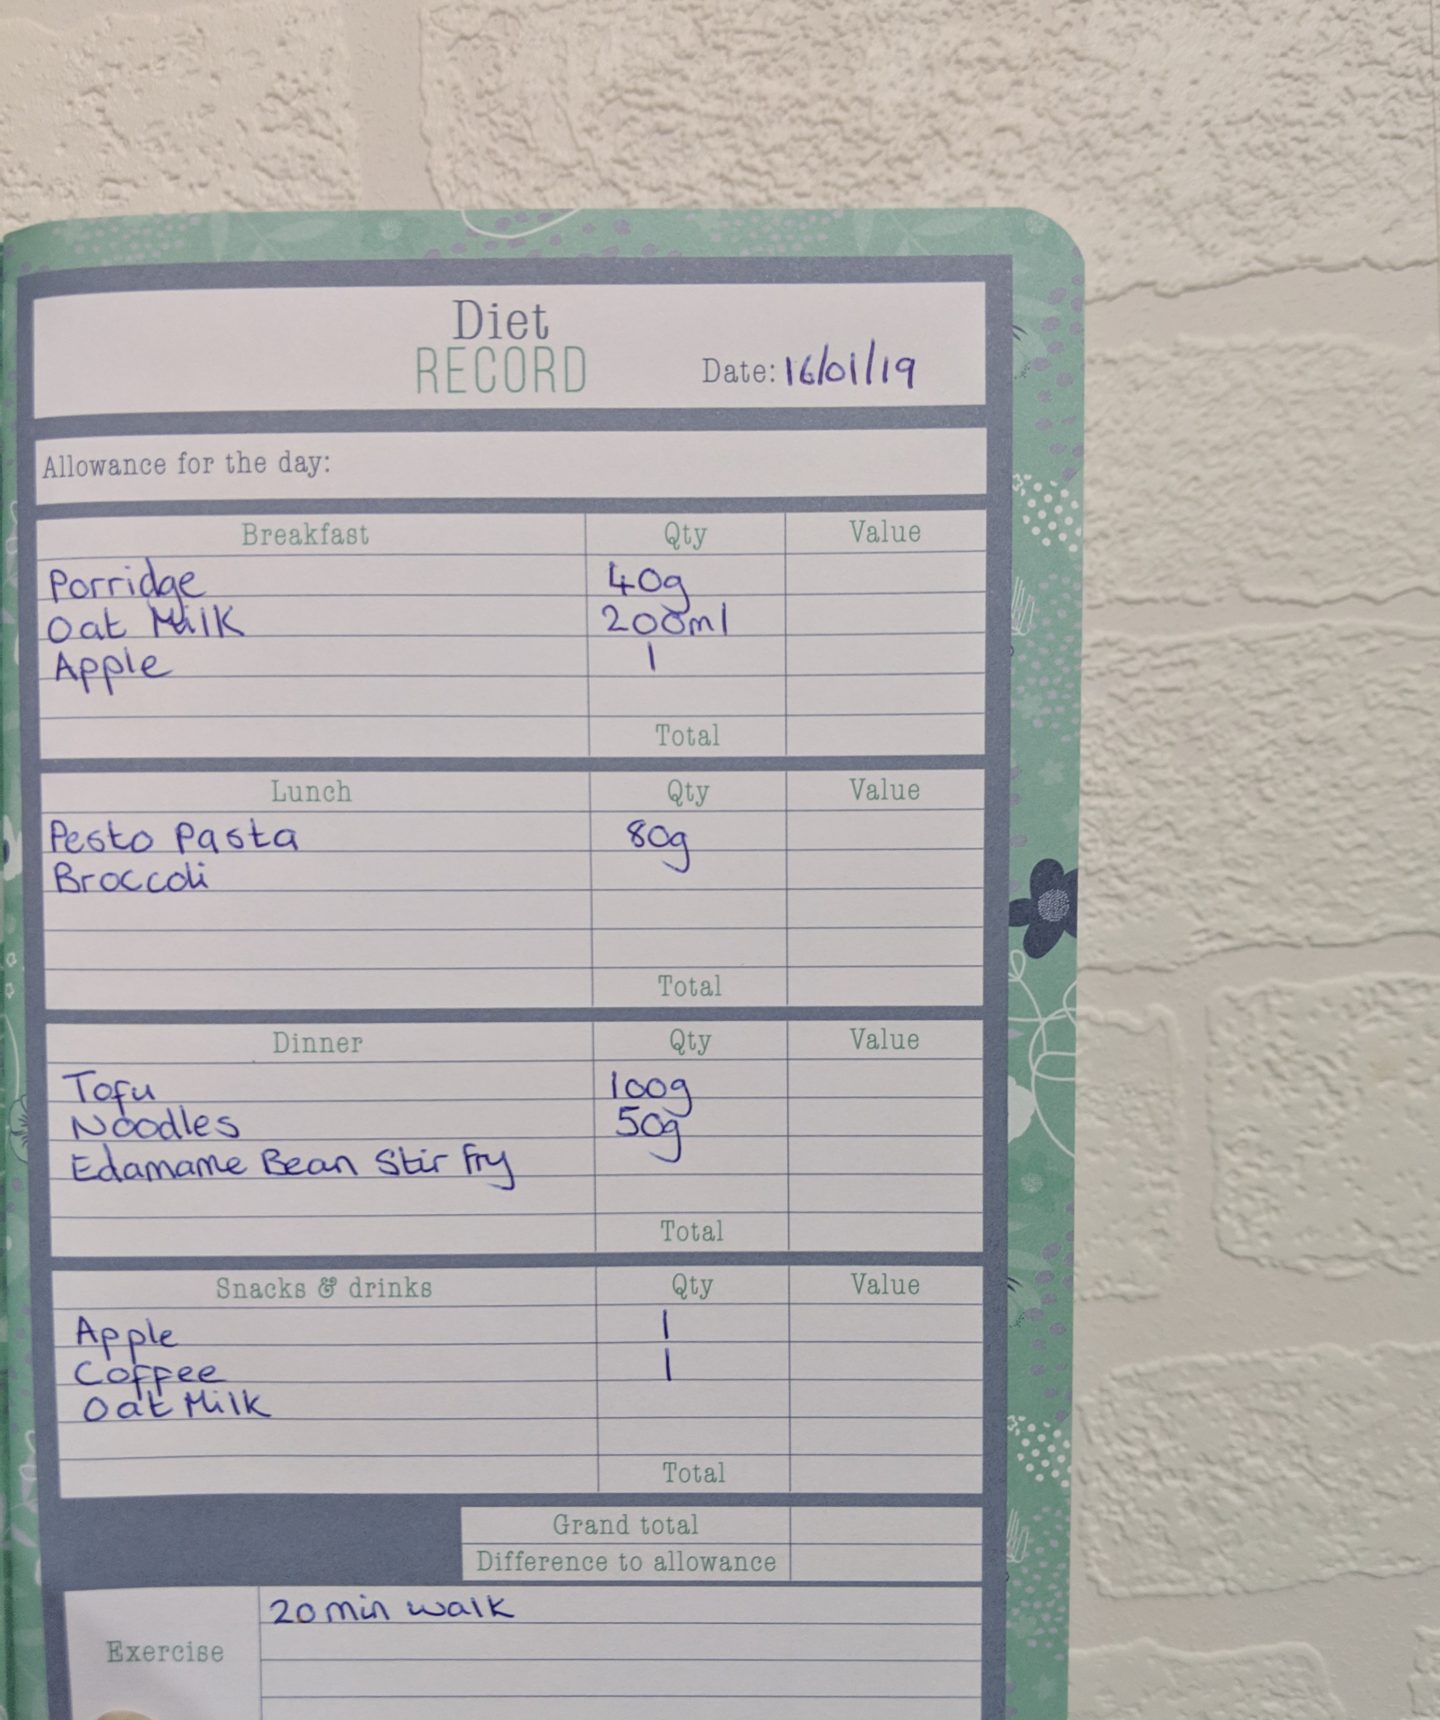 Diet
RECORD
Date: 16/01/19
Allowance for the day:
Breakfast Qty Value
Porridge 40g
Oat Milk 200ml
Apple 1
Total
Lunch Qty Value
Pesto Pasta 80g
Broccoli
Total
Dinner Qty Value
Tofu 100g
Noodles 50g
Edamame Bean Stir Fry
Total
Snacks & drinks Qty Value
Apple 1
Coffee 1
Oat Milk
Total
Grand total
Difference to allowance
20min walk
Exercise